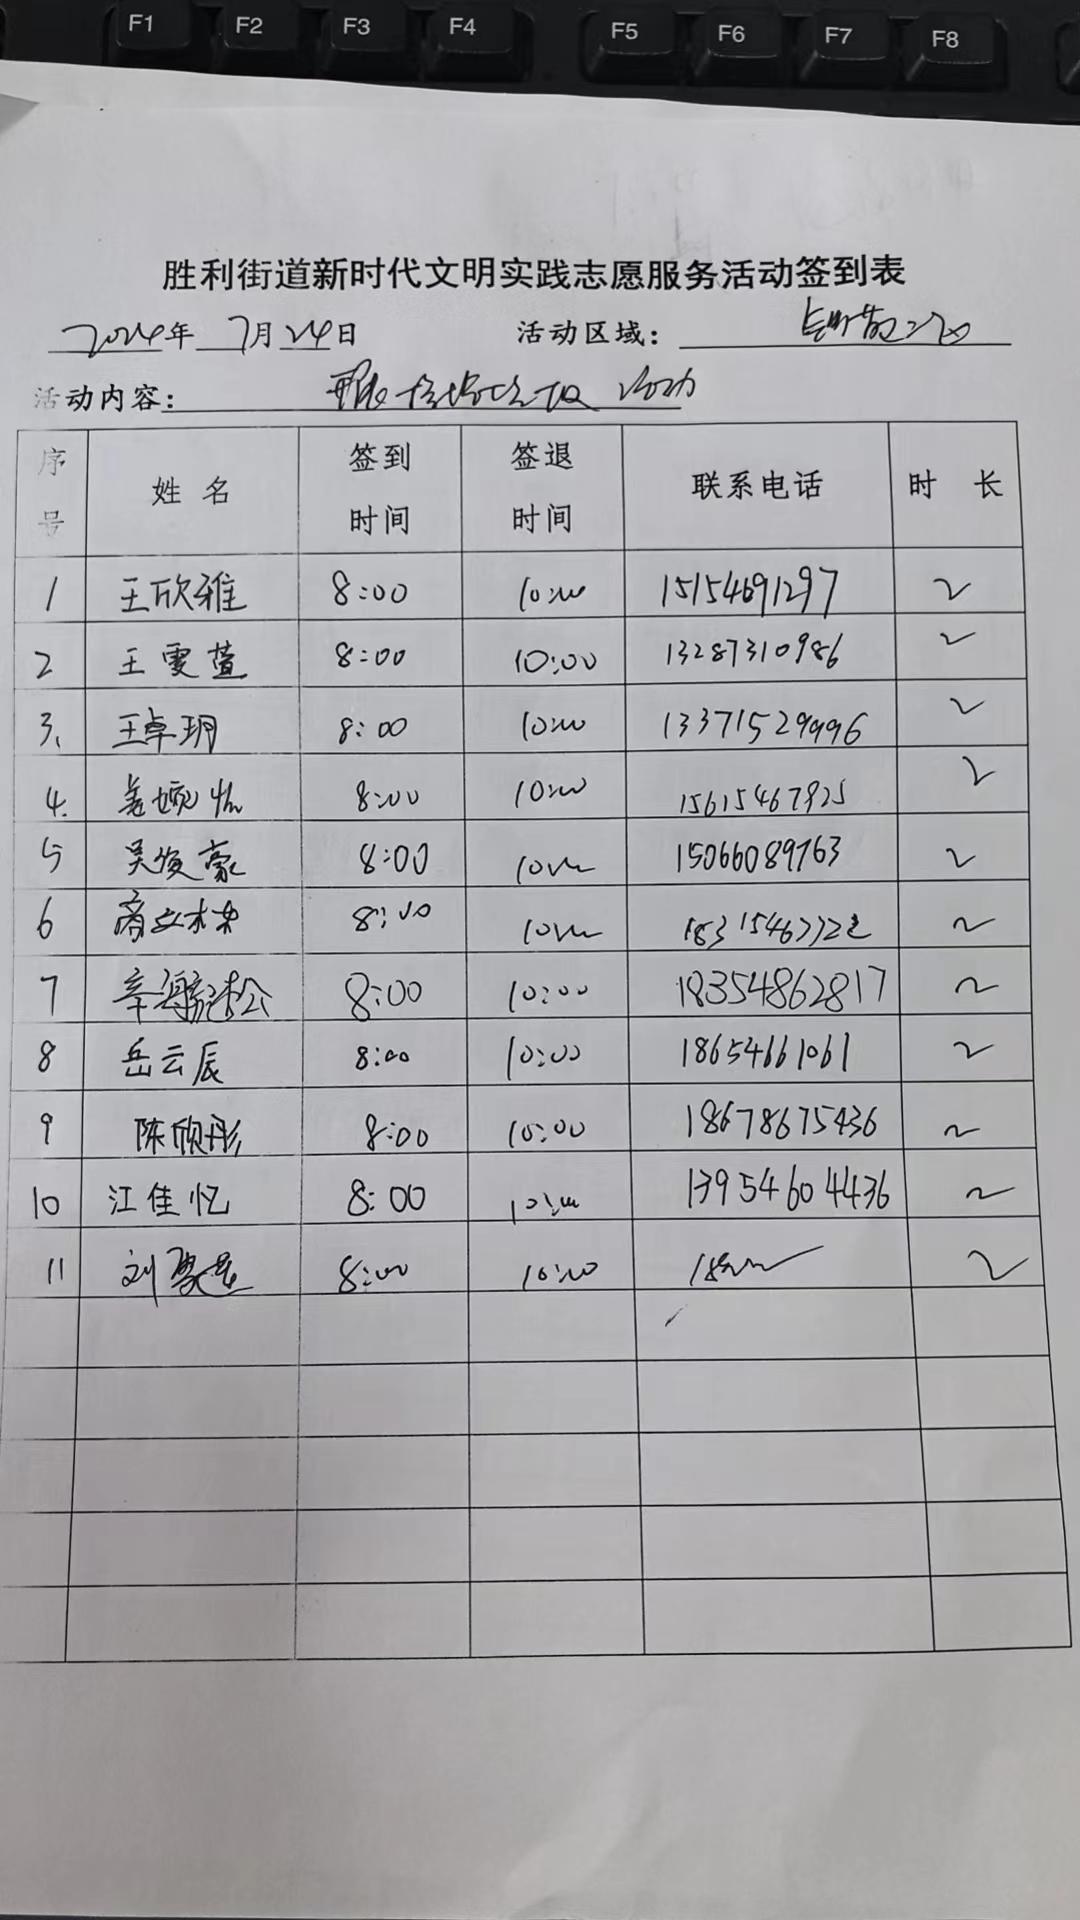 F1 F2 F3 F4 F5 F6 F7 F8
胜利街道新时代文明实践志愿服务活动签到表
2024年 7月24日 活动区域：
活动内容： 活动
序号 姓名 签到时间 签退时间 联系电话 时长
1 王欣雅 8:00 10:00 15154691297 2
2 王雯萱 8:00 10:00 13287310986 2
3、 王卓玥 8:00 10:00 13371529996 2
4. 姜 怡 8:00 10:00 15615467825 2
5 吴俊豪 8:00 10:00 15066089763 2
6 商立 8:00 10:00 2
7 辛 8:00 10:00 18354862817 2
8 岳云辰 8:00 10:00 18654661061 2
9 陈欣彤 8:00 10:00 18678675436 2
10 江佳忆 8:00 10:00 13954604436 2
11 刘 8:00 10:00 2